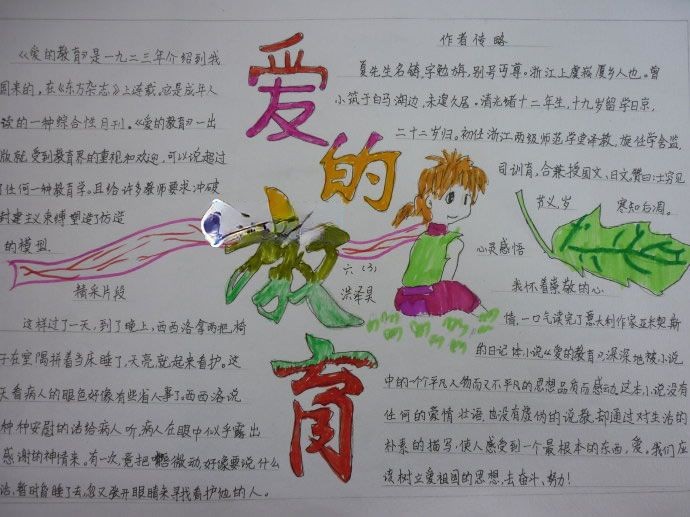 《爱的教育》是一九二三年介绍到我
国来的，在《东方杂志》上连载，它是成年人
读的一种综合性月刊。《爱的教育》一出
版就受到教育界的重视和欢迎，可以说超过
了任何一种教育学。且给许多教师要求冲破
封建主义束缚塑造了仿造
的模型.
精采片段
这样过了一天，到了晚上，西西洛拿两把椅
子在室隅拼着当床睡了，天亮，就起来看护。这
天看病人的眼色好像有些省人事了，西西洛说
种种安慰的话给病人听，病人在眼中似乎露出
感谢的神情来。有一次，竟把嘴微动，好像要说什么
话，暂时昏睡了去，忽又张开眼睛来寻找看护他的人。
爱
的
教
育
六（3）
洪泽昊
作者传略
夏先生名铸，字勉旃，别号丏尊。浙江上虞崧厦乡人也。曾
小筑于白马湖边，未遑久居。清光绪十二年生，十九岁留学日京，
二十二岁归。初任浙江两级师范学堂译教，旋任学舍监，
司训育，合兼授国文、日文，赞曰：士穷见
节义，岁 寒知后凋。
心灵感悟
我怀着崇敬的心
情，一口气读完了意大利作家亚米契斯
的日记体小说《爱的教育》，深深地被小说
中的一个个平凡人物而又不平凡的思想品质所感动，这本小说没有
任何的豪情壮语，也没有虚伪的说教，却通过对生活的
朴素的描写，使人感受到一个最根本的东西，爱。我们应
该树立爱祖国的思想，去奋斗、努力！